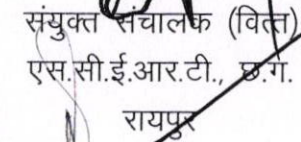 संयुक्त संचालक (वित्त)
एस.सी.ई.आर.टी., छ.ग.
रायपुर